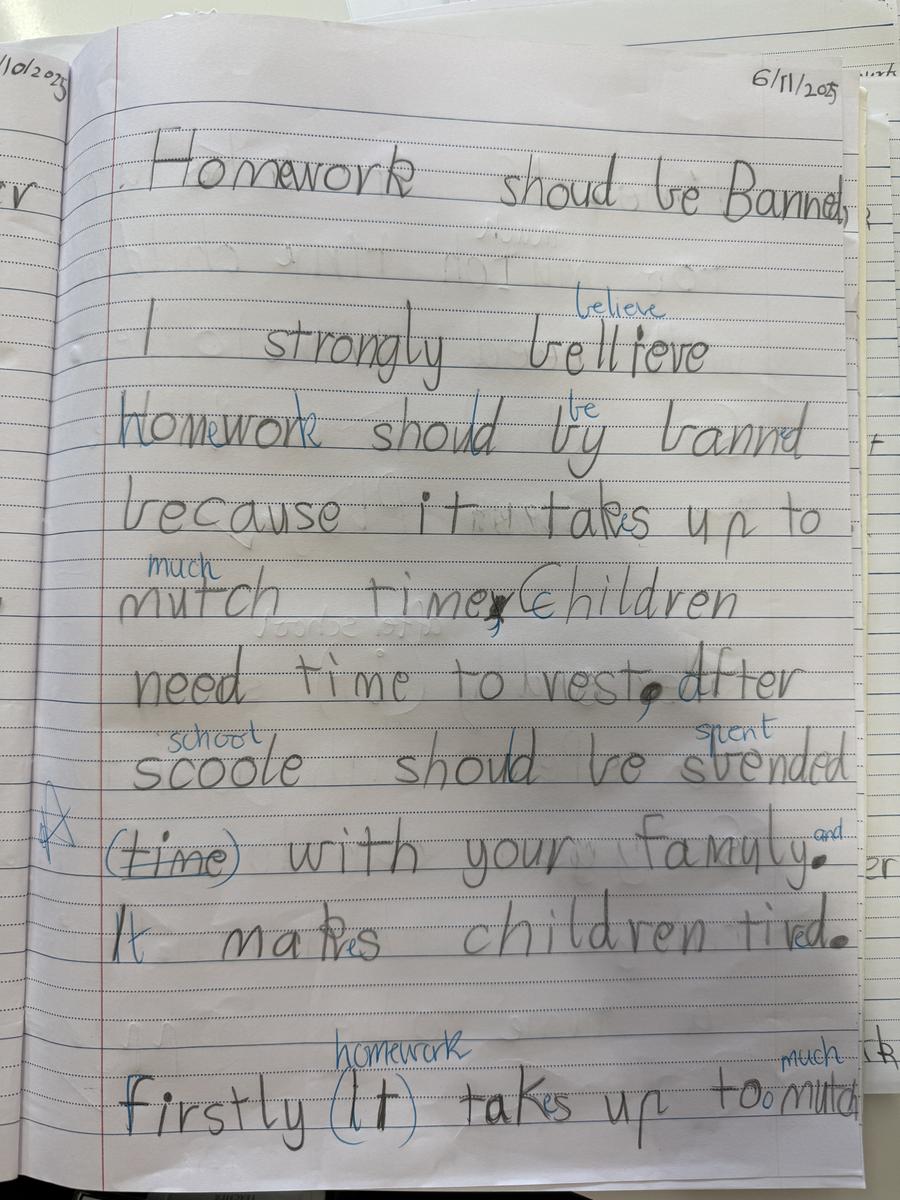 /10/2025
6/11/2025
Homework shoud be Banned,
believe
I strongly bellieve
be
homework should by bannd
because it takes up to
much
mutch time, Children
need time to rest, After
school spent
scoole should be sbended
and
(time) with your famyly.
It makes children tired.
homework much
firstly (It) takes up too mutch